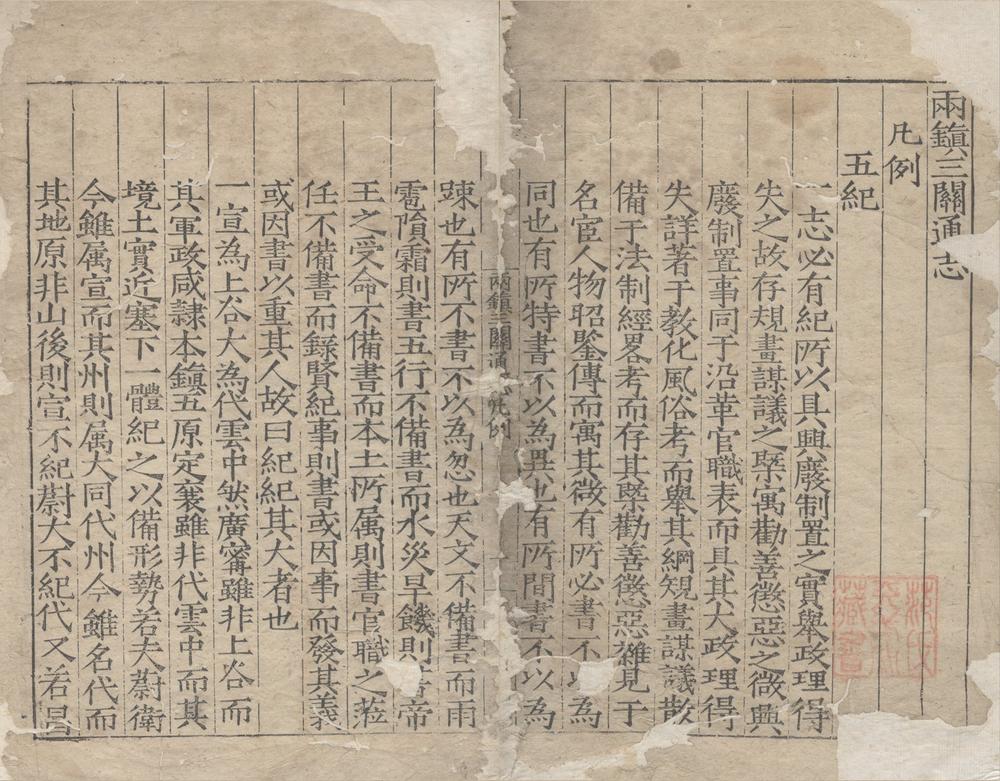 兩鎮三關通志
凡例
五紀
一志必有紀所以具興廢制置之實舉政理得
失之故存規畫謀議之槩寓勸善懲惡之微興
廢制置事同于沿革官職表而具其大政理得
失詳著于教化風俗考而舉其綱規畫謀議散
備于法制經畧考而存其槩勸善懲惡雜見于
名宦人物昭鑒傳而寓其微有所必書不以為
同也有所特書不以為異也有所間書不以為
兩鎮三關通志凡例
踈也有所不書不以為忽也天文不備書而雨
雹隕霜則書五行不備書而水災旱饑則書帝
王之受命不備書而本土所属則書官職之蒞
任不備書而錄賢紀事則書或因事而發其義
或因書以重其人故曰紀紀其大者也
一宣為上谷大為代雲中然廣甯雖非上谷而
其軍政咸隷本鎮五原定襄雖非代雲中而其
境土實近塞下一體紀之以備形勢若夫蔚衛
今雖属宣而其州則属大同代州今雖名代而
其地原非山後則宣不紀蔚大不紀代又若昌
藏書